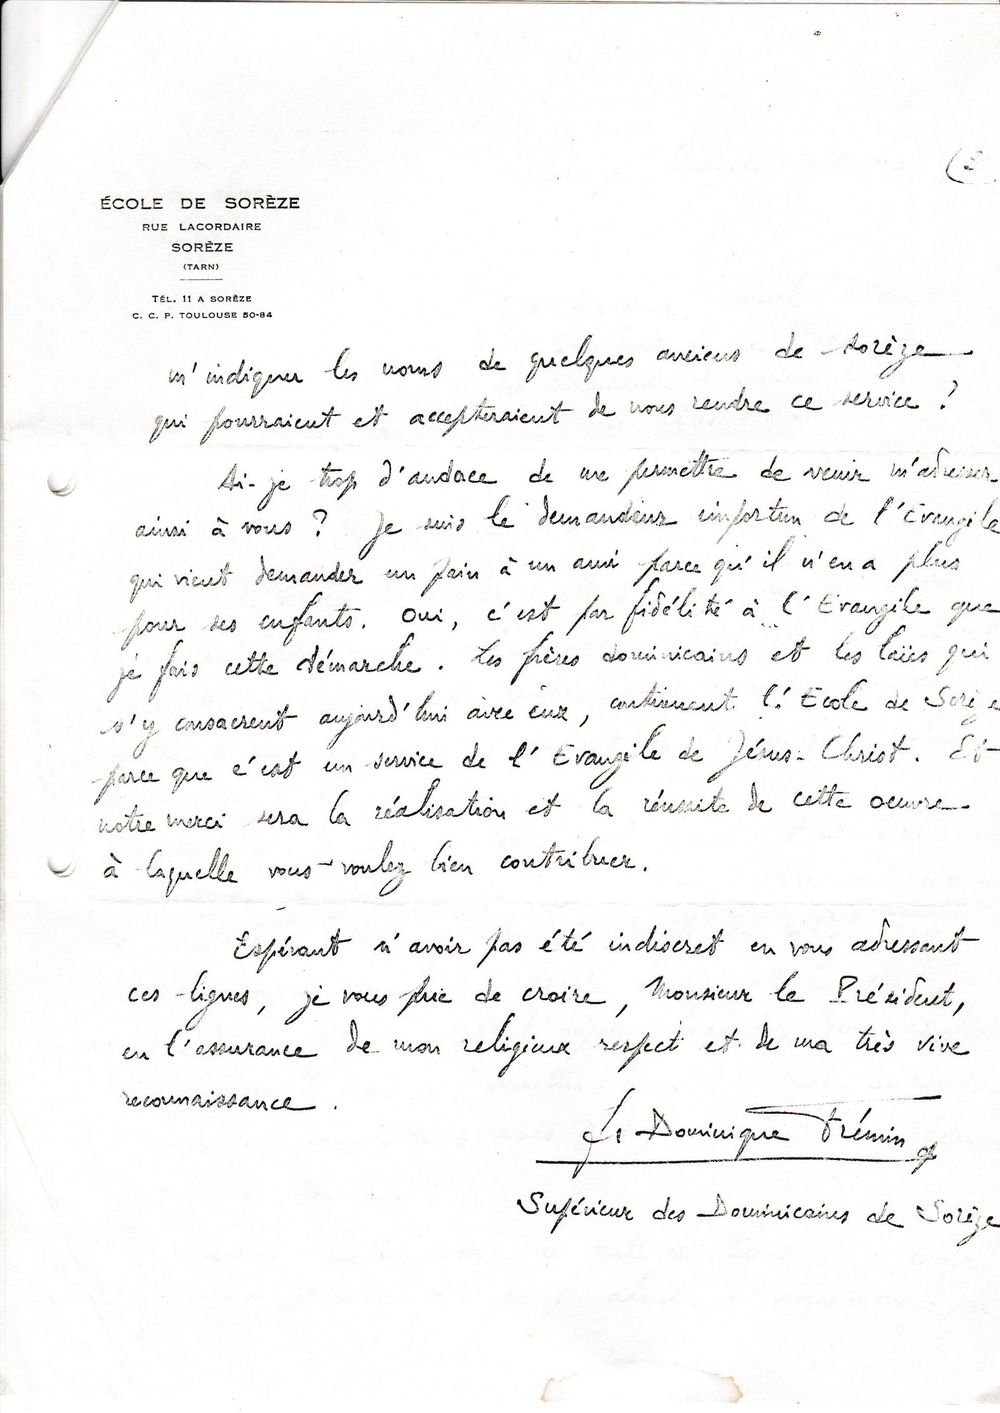 ÉCOLE DE SORÈZE
RUE LACORDAIRE
SORÈZE
(TARN)
TÉL. 11 A SORÈZE
C. C. P. TOULOUSE 50-84
m'indiquer les noms de quelques anciens de Sorèze
qui pourraient et accepteraient de nous rendre ce service ?
Ai-je trop d'audace de me permettre de venir m'adresser
ainsi à vous ? Je suis le demandeur importun de l'Evangile
qui vient demander un pain à un ami parce qu'il n'en a plus
pour ses enfants. Oui, c'est par fidélité à l'Evangile que
je fais cette démarche. Les frères dominicains et les laïcs qui
s'y consacrent aujourd'hui avec eux, continuent l'Ecole de Sorèze
parce que c'est un service de l'Evangile de Jésus-Christ. Et
notre merci sera la réalisation et la réussite de cette oeuvre
à laquelle vous voulez bien contribuer.
Espérant n'avoir pas été indiscret en vous adressant
ces lignes, je vous prie de croire, Monsieur le Président,
en l'assurance de mon religieux respect et de ma très vive
reconnaissance.
fr Dominique Frémin op
Supérieur des Dominicains de Sorèze